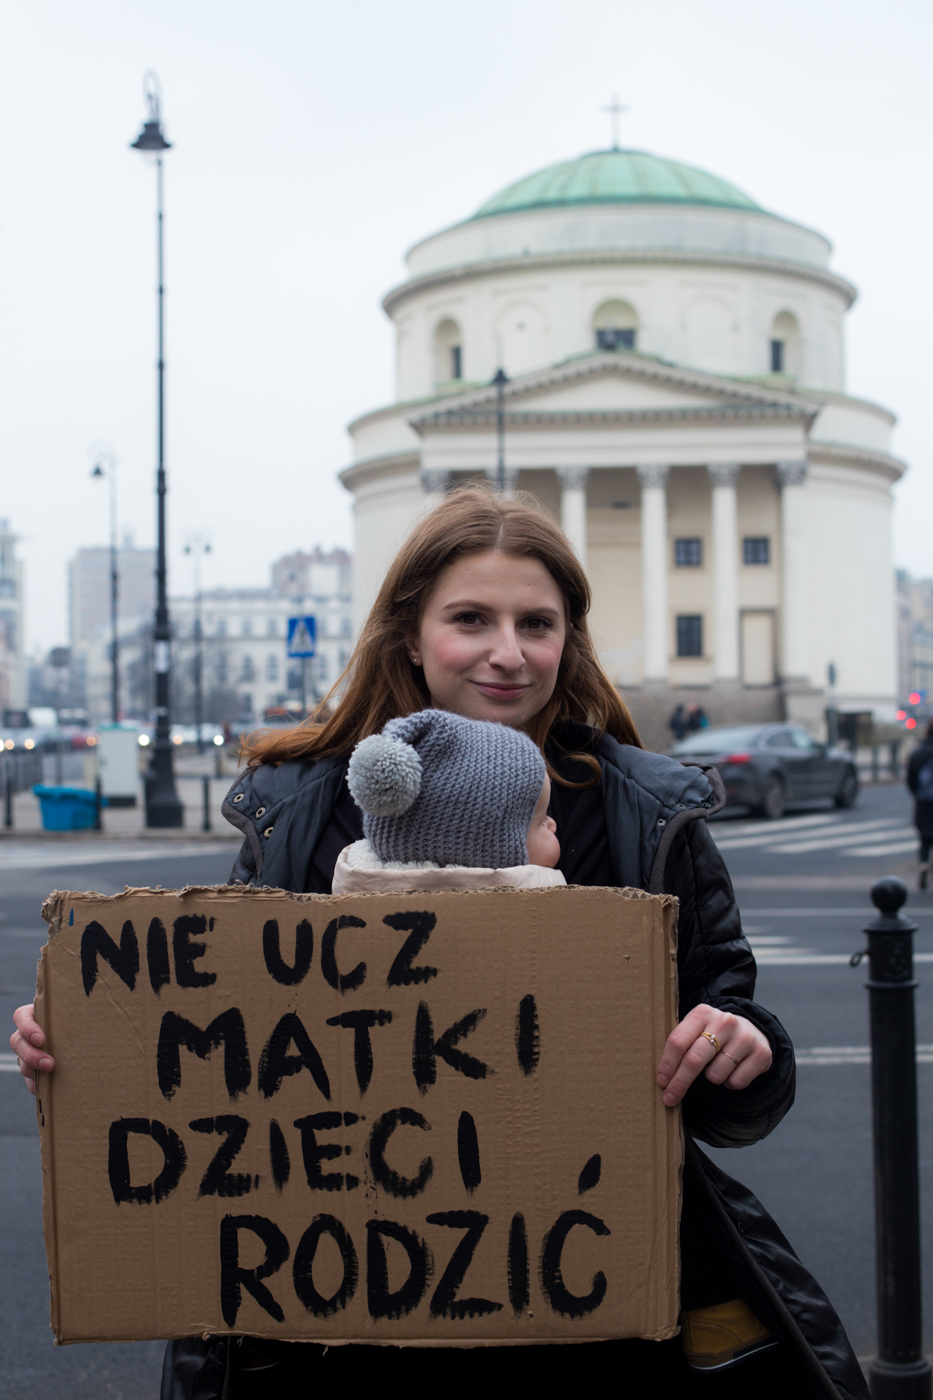 NIE UCZ
MATKI
DZIECI
RODZIĆ